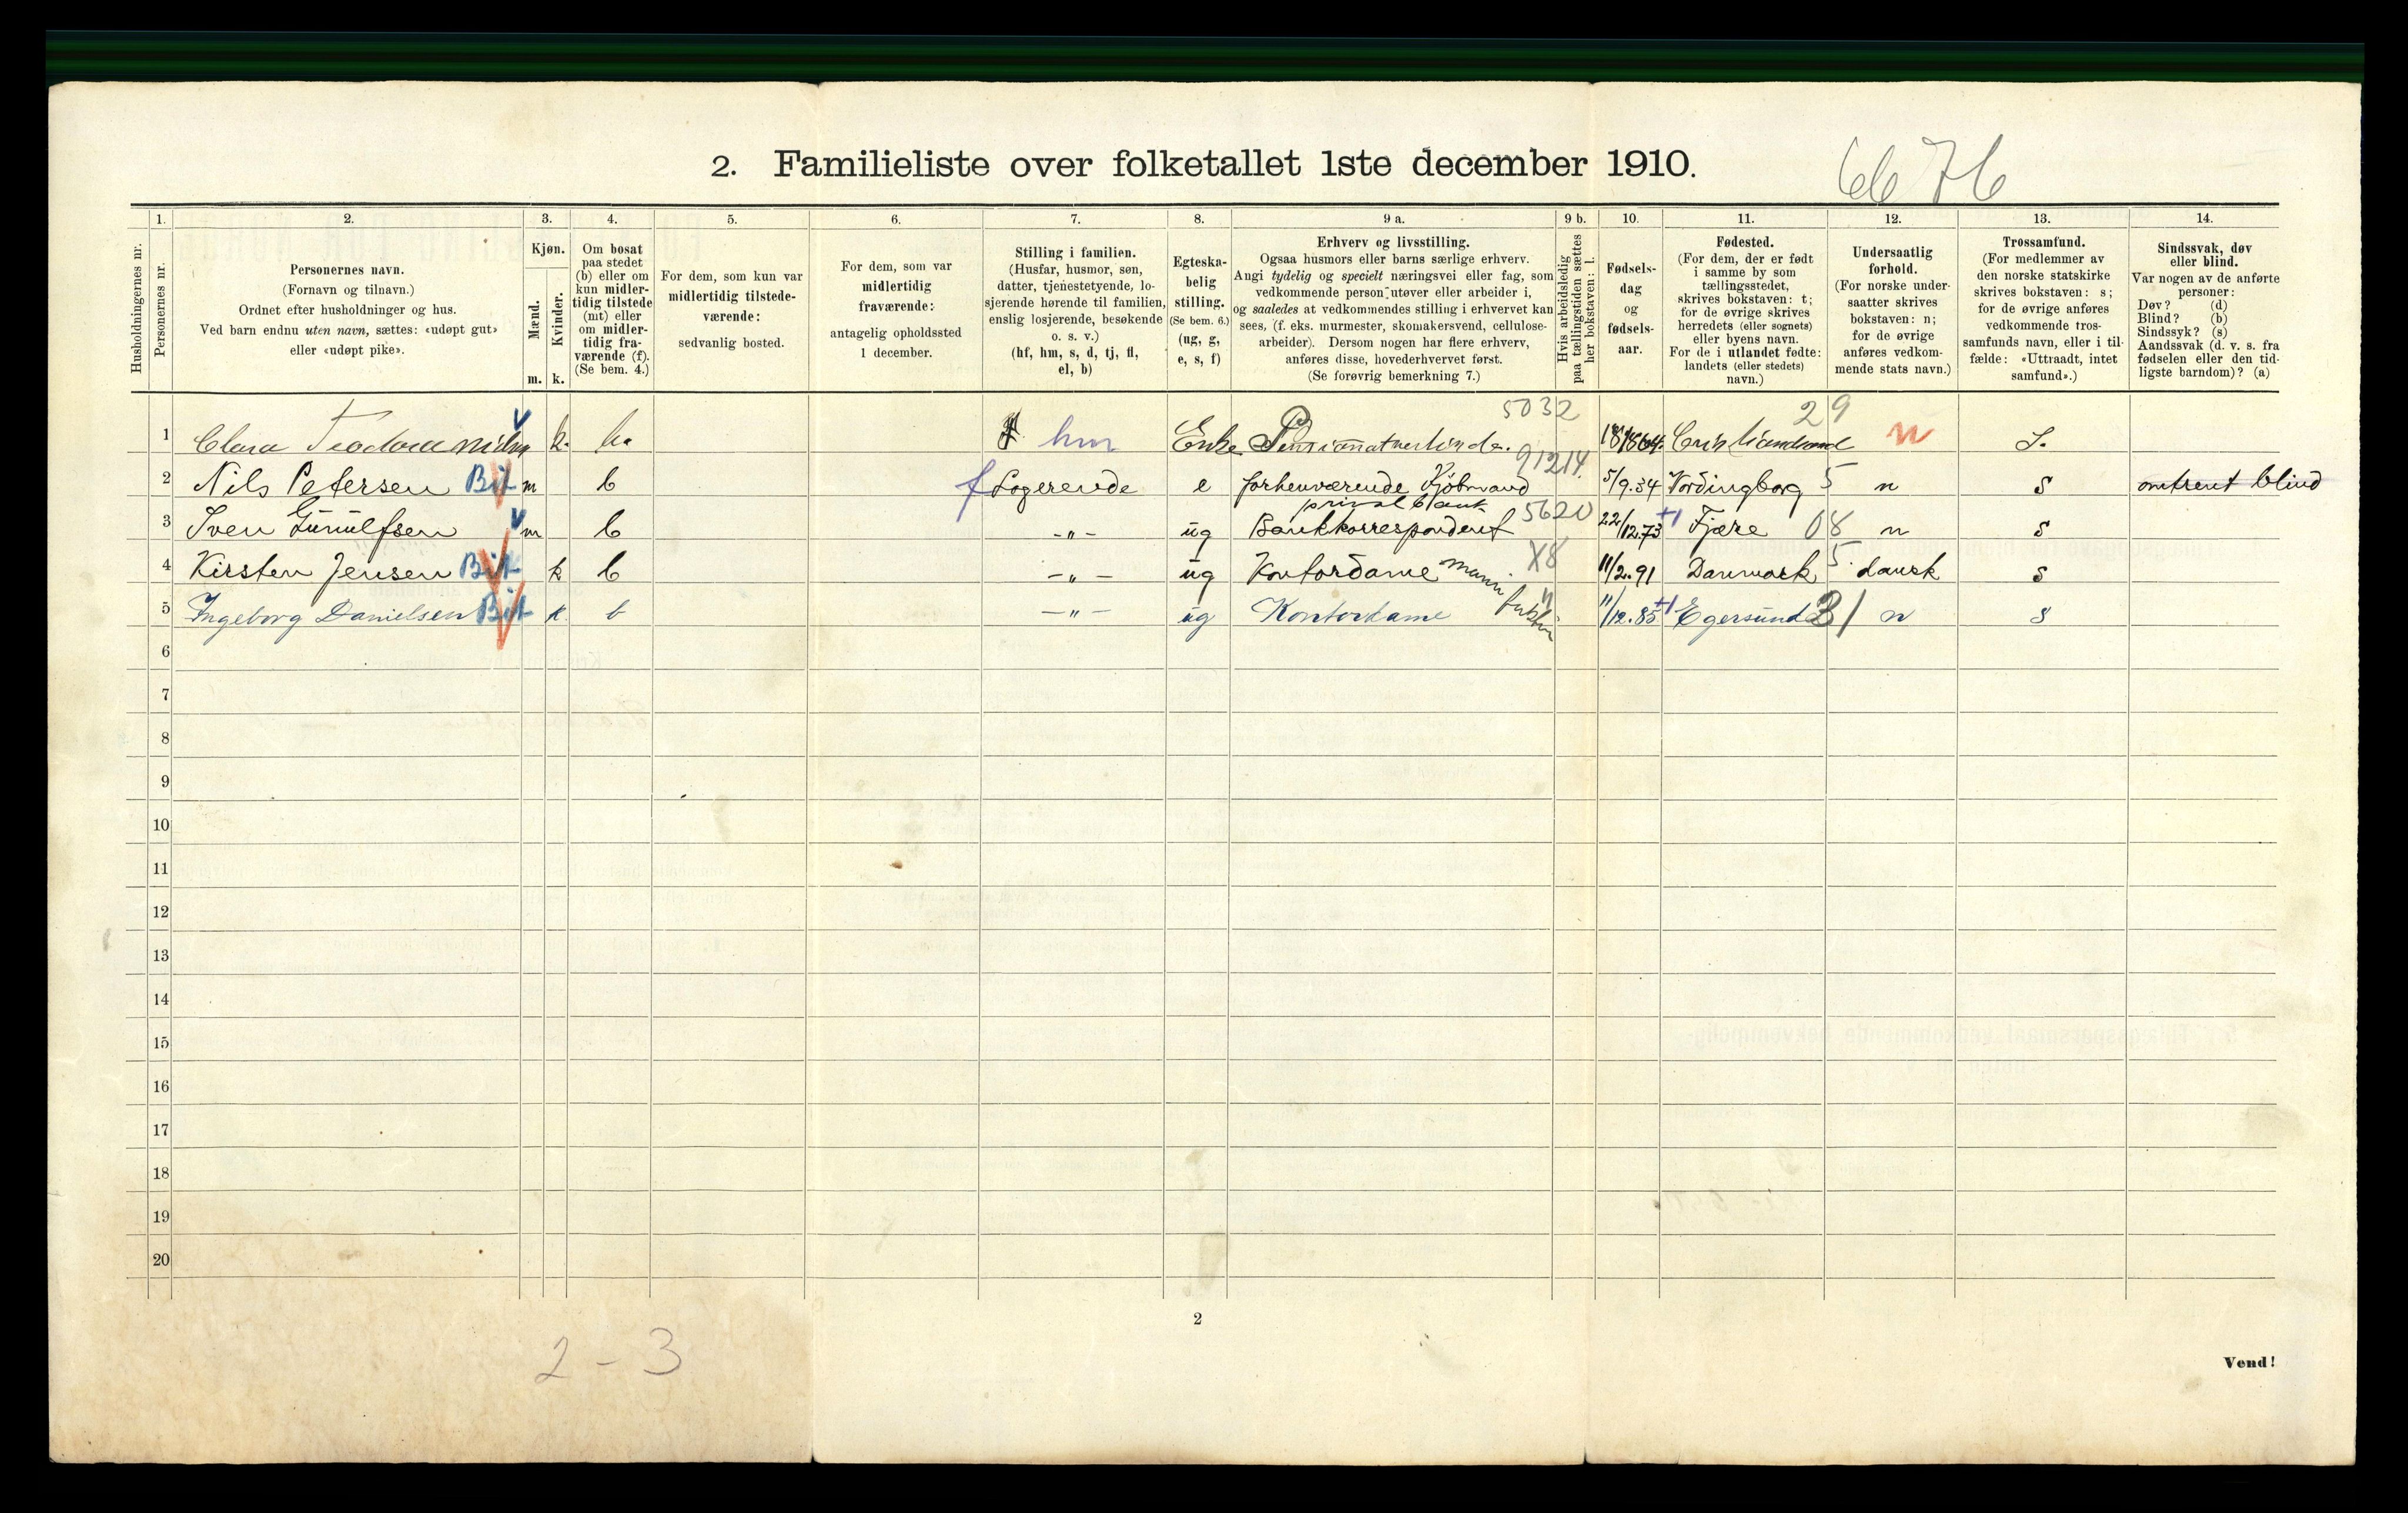 2. Familieliste over folketallet 1ste december 1910.
6676
1. 2. 3. 4. 5. 6. 7. 8. 9 a. 9 b. 10. 11. 12. 13. 14.
Husholdningernes nr.
Personernes nr.
Personernes navn.
(Fornavn og tilnavn.)
Ordnet efter husholdninger og hus.
Ved barn endnu uten navn, sættes: «udøpt gut»
eller «udøpt pike».
Kjøn.
Mænd.
Kvinder.
m. k.
Om bosat
paa stedet
(b) eller om
kun midler-
tidig tilstede
(mt) eller
om midler-
tidig fra-
værende (f).
(Se bem. 4.)
For dem, som kun var
midlertidig tilstede-
værende:
sedvanlig bosted.
For dem, som var
midlertidig
fraværende:
antagelig opholdssted
1 december.
Stilling i familien.
(Husfar, husmor, søn,
datter, tjenestetyende, lo-
sjerende hørende til familien,
enslig losjerende, besøkende
o. s. v.)
(hf, hm, s, d, tj, fl,
el, b)
Egteska-
belig
stilling.
(Se bem. 6.)
(ug, g,
e, s, f)
Erhverv og livsstilling.
Ogsaa husmors eller barns særlige erhverv.
Angi tydelig og specielt næringsvei eller fag, som
vedkommende person utøver eller arbeider i,
og saaledes at vedkommendes stilling i erhvervet kan
sees, (f. eks. murmester, skomakersvend, cellulose-
arbeider). Dersom nogen har flere erhverv,
anføres disse, hovederhvervet først.
(Se forøvrig bemerkning 7.)
Hvis arbeidsledig
paa tællingstiden sættes
her bokstaven: l.
Fødsels-
dag
og
fødsels-
aar.
Fødested.
(For dem, der er født
i samme by som
tællingsstedet,
skrives bokstaven: t;
for de øvrige skrives
herredets (eller sognets)
eller byens navn.
For de i utlandet fødte:
landets (eller stedets)
navn.)
Undersaatlig
forhold.
(For norske under-
saatter skrives
bokstaven: n;
for de øvrige
anføres vedkom-
mende stats navn.)
Trossamfund.
(For medlemmer av
den norske statskirke
skrives bokstaven: s;
for de øvrige anføres
vedkommende tros-
samfunds navn, eller i til-
fælde: «Uttraadt, intet
samfund».)
Sindssvak, døv
eller blind.
Var nogen av de anførte
personer:
Døv? (d)
Blind? (b)
Sindssyk? (s)
Aandssvak (d. v. s. fra
fødselen eller den tid-
ligste barndom)? (a)
5032 29
1 Clara Teodora k. b. hm Enke Pensionatvertinde. Christiansund n S.
91214.
2 Nils Petersen Bit m b f Logerende e forhenværende Kjöbmand 5/9.34 Vordingborg 5 n s omtrent blind
privat bank 5620
3 Iven Gunulfsen m b -"- ug Bankkorrespondent 22/12.73 +1 Fjære 08 n s
X8
4 Kirsten Jensen Bit k b -"- ug Kontordame 11/2.91 Danmark 5 dansk s
5 Ingeborg Danielsen Bit k b -"- ug Kontordame " 11/12.85 +1 Egersund 31 n s
6
7
8
9
10
11
12
13
14
15
16
17
18
19
20
2
2 - 3
Vend!